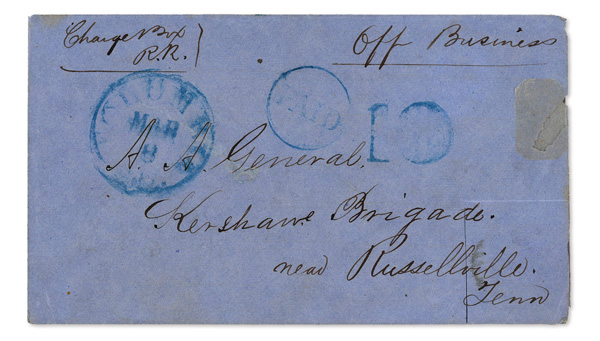 Charge Box
R.R.
Off Business
COLUMB
MAR
9
PAID
10
A. A. General.
Kershaws Brigade.
near Russellville.
Tenn